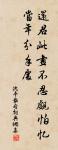 還君此畫不忍觀怕憶
當年分手處